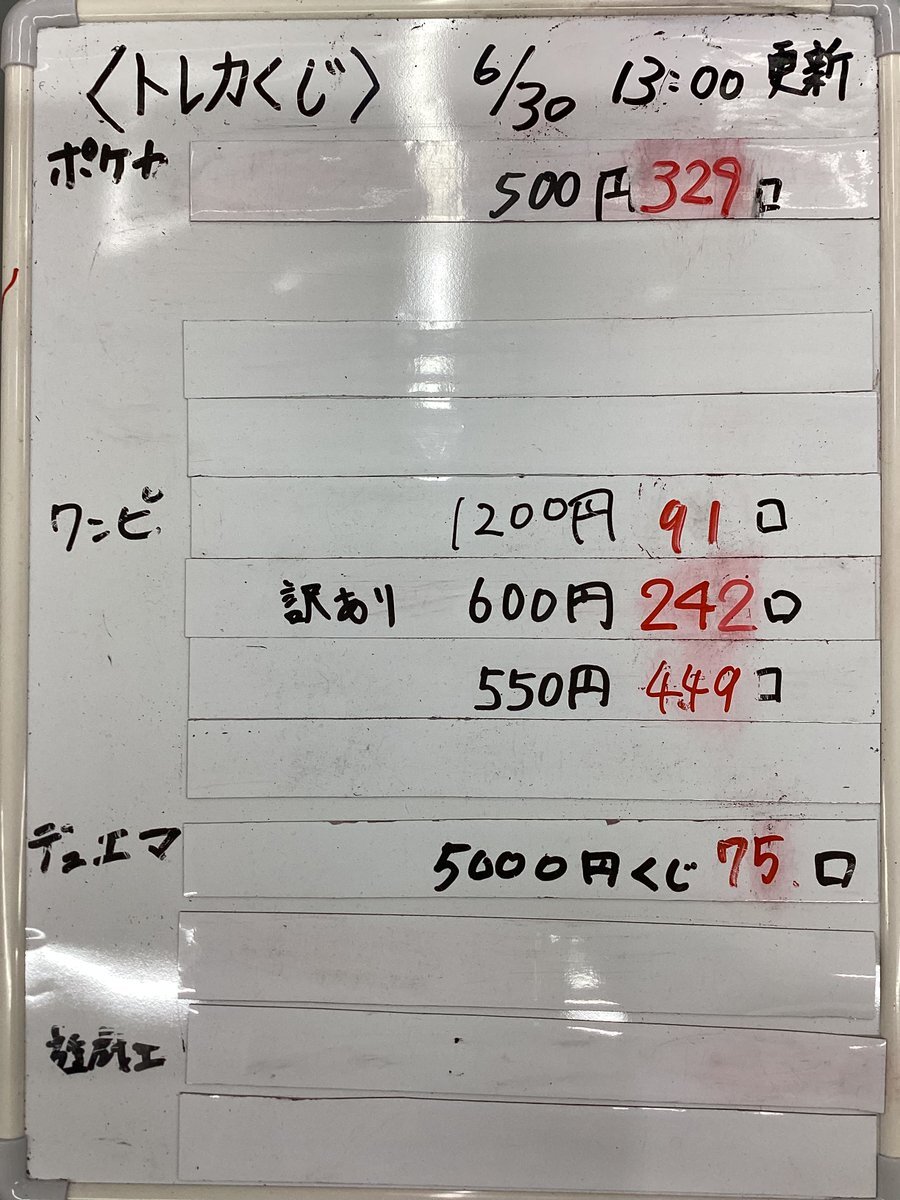 〈トレカくじ〉 6/30 13:00 更新
ポケカ 500円 329口
ワンピ 1200円 91口
訳あり 600円 242口
550円 449口
デュエマ 5000円くじ 75口